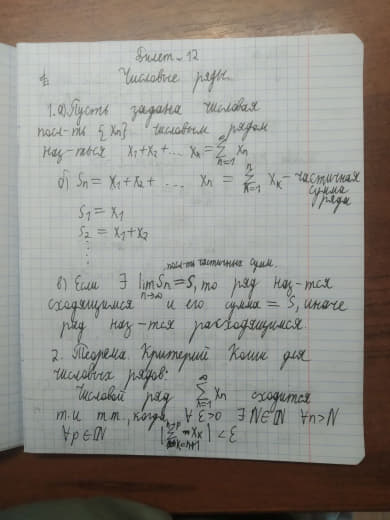 Билет-12
Числовые ряды.
1. а) Пусть задана числовая
посл-ть {xn} числовым рядом
наз-ться x₁+x₂+... xₖ=∑ₙ₌₁^∞ xn
б) Sn = x₁+x₂+ ... xn = ∑ₖ₌₁ⁿ xₖ - частичная сумма ряда
S₁ = x₁
S₂ = x₁+x₂
⋮
посл-ти частичных сумм.
в) Если ∃ lim Sn = S, то ряд наз-тся
n→∞
сходящимся и его сумма = S, иначе
ряд наз-тся расходящимся.
2. Теорема. Критерий Коши для
числовых рядов:
Числовой ряд ∑ₙ₌₁^∞ xn сходится
т.и т.т., когда ∀ ℰ>0 ∃ N∈ℕ ∀n>N
∀p∈ℕ |∑ₖ₌ₙ₊₁ⁿ⁺ᵖ xₖ| < ℰ